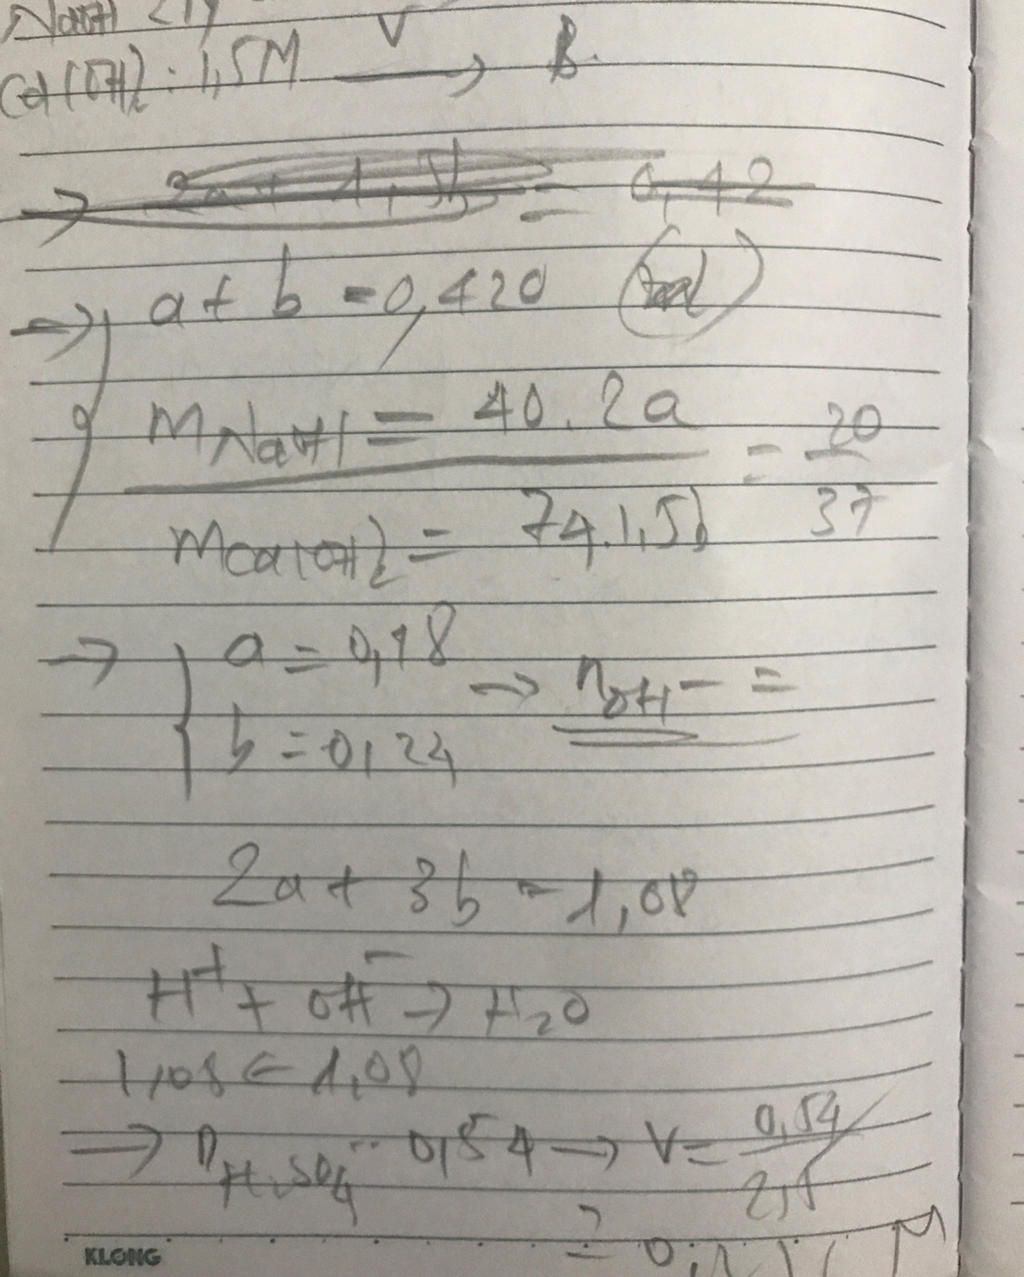 NaOH 2M
Ca(OH)2 : 1,5M V → B.
→ 2a + 1,5b = 0,42
→ { a + b = 0,420 (mol)
mNaOH = 40.2a = 20
mCa(OH)2 = 74.1,5b 37
→ { a = 0,18 → nOH- =
b = 0,24
2a + 3b = 1,08
H+ + OH- → H2O
1,08 ← 1,08
⇒ nH2SO4 = 0,54 → V = 0,54
2,5
=
KLONG